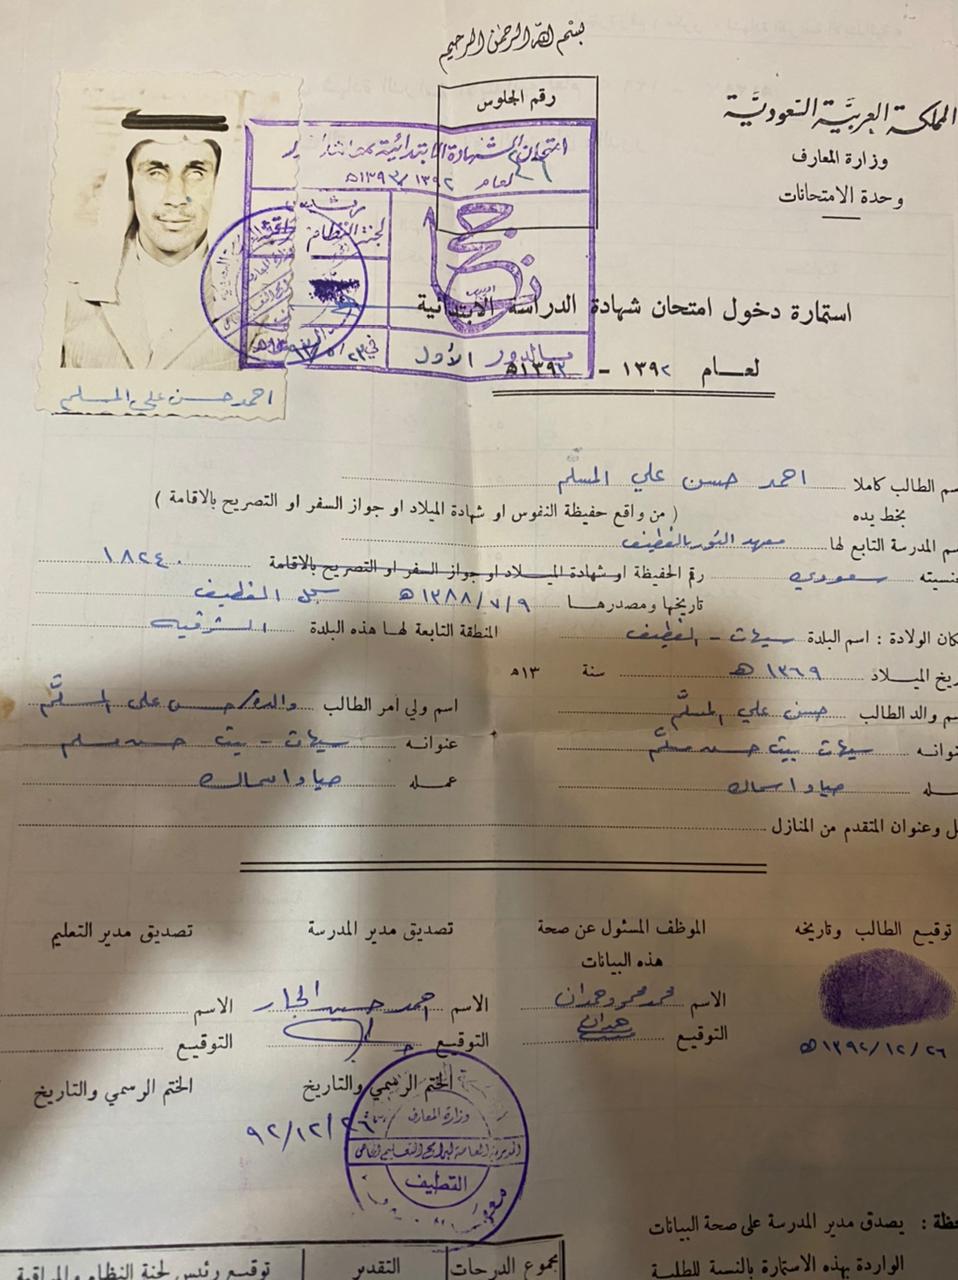 بسم الله الرحمن الرحيم
المملكة العربية السعودية
وزارة المعارف
وحدة الامتحانات
رقم الجلوس
٤٦
امتحان الشهادة الابتدائية
لعام ١٣٩٢/١٣٩٣هـ
لجنة النظام
نجاح
بالدور الأول
استمارة دخول امتحان شهادة الدراسة الابتدائية
لعام ١٣٩٢ - ١٣٩٣هـ
احمد حسن علي المسلم
سم الطالب كاملا احمد حسن علي المسلم
بخط يده ( من واقع حفيظة النفوس او شهادة الميلاد او جواز السفر او التصريح بالاقامة )
سم المدرسة التابع لها معهد النور بالقطيف
نسيته سعودي رقم الحفيظة او شهادة الميلاد او جواز السفر او التصريح بالاقامة ١٨٢٤٠
تاريخها ومصدرها ١٣٨٨/٧/٩هـ سجل القطيف
كان الولادة : اسم البلدة سيهات - القطيف المنطقة التابعة لها هذه البلدة الشرقيه
ريخ الميلاد ١٣٦٩هـ سنة ١٣هـ
سم والد الطالب حسن علي المسلم اسم ولي أمر الطالب والده/حسن علي المسلم
نوانه سيهات بيت حسن مسلم عنوانه سيهات - بيت حسن مسلم
ـله صياد اسماك عمله صياد اسماك
ـل وعنوان المتقدم من المنازل
توقيع الطالب وتاريخه الموظف المسئول عن صحة تصديق مدير المدرسة تصديق مدير التعليم
هذه البيانات
الاسم محمد محمود حمدان الاسم احمد حسين الجار الاسم
التوقيع التوقيع التوقيع
١٣٩٢/١٢/٢٦هـ
الختم الرسمي والتاريخ الختم الرسمي والتاريخ
٩٢/١٢/٢٦
وزارة المعارف
القطيف
حظة : يصدق مدير المدرسة على صحة البيانات
الواردة بهذه الاستمارة بالنسبة للطلبة
مجموع الدرجات التقدير توقيع رئيس لجنة النظام والمراقبة